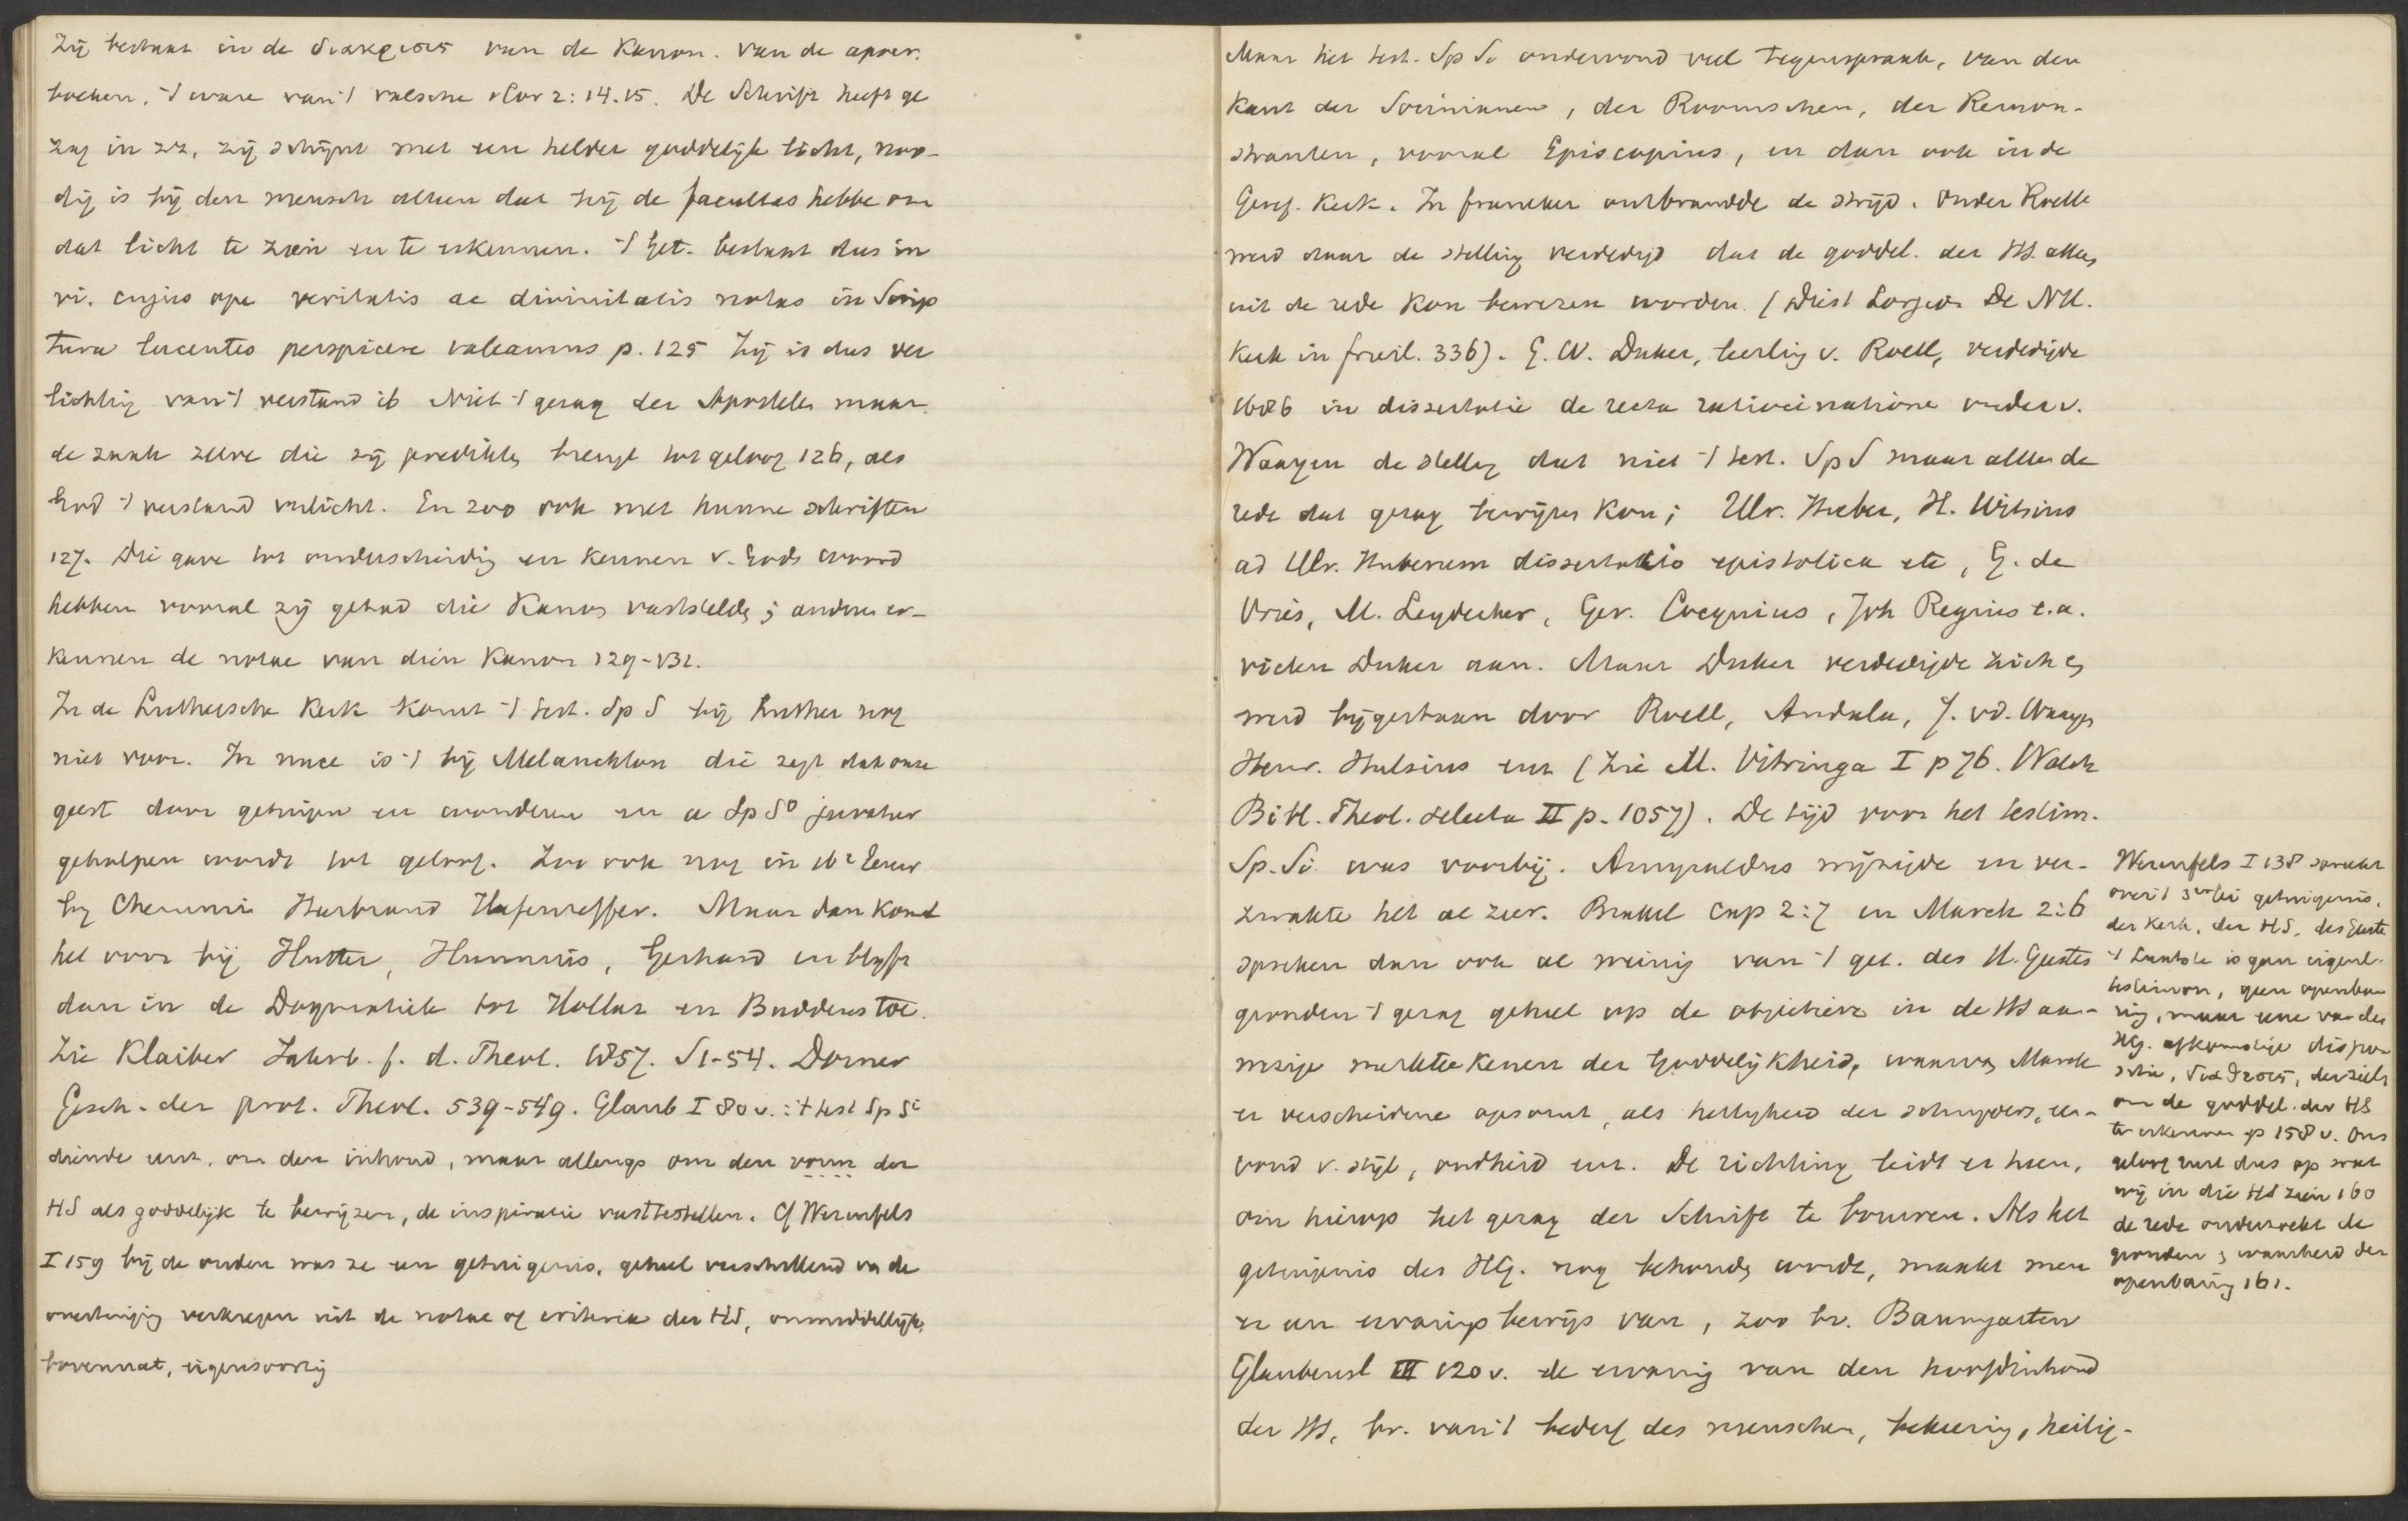 Zij bestaat in de διακρισις van de Kanon. van de apocr.
boeken, 't ware van 't valsche 1 Cor 2:14.15. De Schrift heeft ge
zag in zz, zij schijnt met een helder goddelijk licht, noo-
dig is bij den mensch alleen dat hij de facultas hebbe om
dat licht te zien en te erkennen. 't Get. bestaat dus in
vi. cujus ope veritatis ac divinitatis notas in Scrip
tura lucentes perspicere valeamus p. 125 Zij is dus ver
lichting van 't verstand ib Niet 't gezag der Apostelen maar
de zaak zelve die zij predikten brengt tot geloof 126, als
God 't verstand verlicht. En zoo ook met hunne schriften
127. Die gave tot onderscheidig en kennen v. Gods woord
hebben vooral zij gehad die Kanon vaststelde; anderen er-
kennen de notae van dien Kanon 129-132.
In de Luthersche Kerk komt 't test. Sp S bij Luther nog
niet voor. In nuce is 't bij Melanchton die zegt dat onze
geest door getuigen en wonderen en a Sp So juvatur
geholpen wordt tot geloof. Zoo ook nog in 16e Eeuw
by Chemni Heerbrand Hafenreffer. Maar dan komt
het voor bij Hutter, Hunnius, Gerhard en blyft
dan in de Dogmatiek tot Hollaz en Buddeus toe.
Zie Klaiber Jahrb. f. d. Theol. 1857. S 1-54. Dorner
Gesch. der prot. Theol. 539-549. Glaub I 80 v. : 't test Sp Si
diende eerst. om den inhoud, maar allengs om den vorm der
HS als goddelijk te bewijzen, de inspiratie vasttestellen. Cf Werenfels
I 159 bij de ouden was ze een getuigenis, geheel verschillend va de
overtuiging verkregen uit de notae of criteria der HS, onmiddellijk,
bovennat, eigensoortig
Maar het test. Sp Si ondervond veel tegenspraak, van den
kant der Socinianen, der Roomschen, der Remon-
stranten, vooral Episcopius, en dan ook in de
Geref. Kerk. In franeker ontbrandde de strijd. Onder Roell
werd daar de stelling verdedigd dat de goddel. der HS. alleen
uit de rede kon bewezen worden. (Diest Lorgion De NH.
Kerk in friesl. 336). G. W. Duker, leerling v. Roell, verdedigde
1686 in dissertatie de recta ratiocinatione onder v.
Waayen de stelling dat niet 't test. Sp S maar alleen de
rede dat gezag bewijzen kon; Ulr. Huber, H. Witsius
ad Ulr. Huberum dissertatio epistolica etc, G. de
Vries, M. Leydecker, Ger. Cocquius, Joh Regius e.a.
vielen Duker aan. Maar Duker verdedigde zich en
werd bijgestaan door Roell, Andala, J. vd. Waayen
Henr. Hulsius enz (Zie M. Vitringa I p 76. Walch
Bibl. Theol. selecta II p. 1057). De tijd voor het testim.
Sp. Si was voorbij. Amyraldus wijzigde en ver-
zwakte het al zeer. Brakel cap 2:7 en Marck 2:6
spreken dan ook al weinig van 't get. des H. Geestes
gronden 't gezag geheel op de objectieve in de HS aan-
wezige merkteekenen der Goddelijkheid, waarvan Marck
er verscheidene opsomt, als heiligheid der schrijvers, een-
voud v. stijl, oudheid enz. De richting leidt er heen,
om hierop het gezag der Schrift te bouwen. Als het
getuigenis des HG. nog behouden wordt, maakt men
er een ervarings bewijs van, zoo bv. Baumgarten
Glaubensl III 120 v. de ervaring van den hoofdinhoud
der HS, bv. van 't bederf des menschen, bekeering, heilig-
Werenfels I 138 spreekt
over 't 3erlei getuigenis,
der Kerk, der HS, des Geestes
't Laatste is geen eigenl.
testimon, geen openba
ring, maar eene van den
HG. afkomstige dispo
sitie, διαθεσις, der ziel
om de goddel. der HS
te erkennen p 158 v. Ons
geloof rust dus op wat
wij in die HS zien 160
de rede onderzoekt de
gronden en waarheid der
openbaring 161.